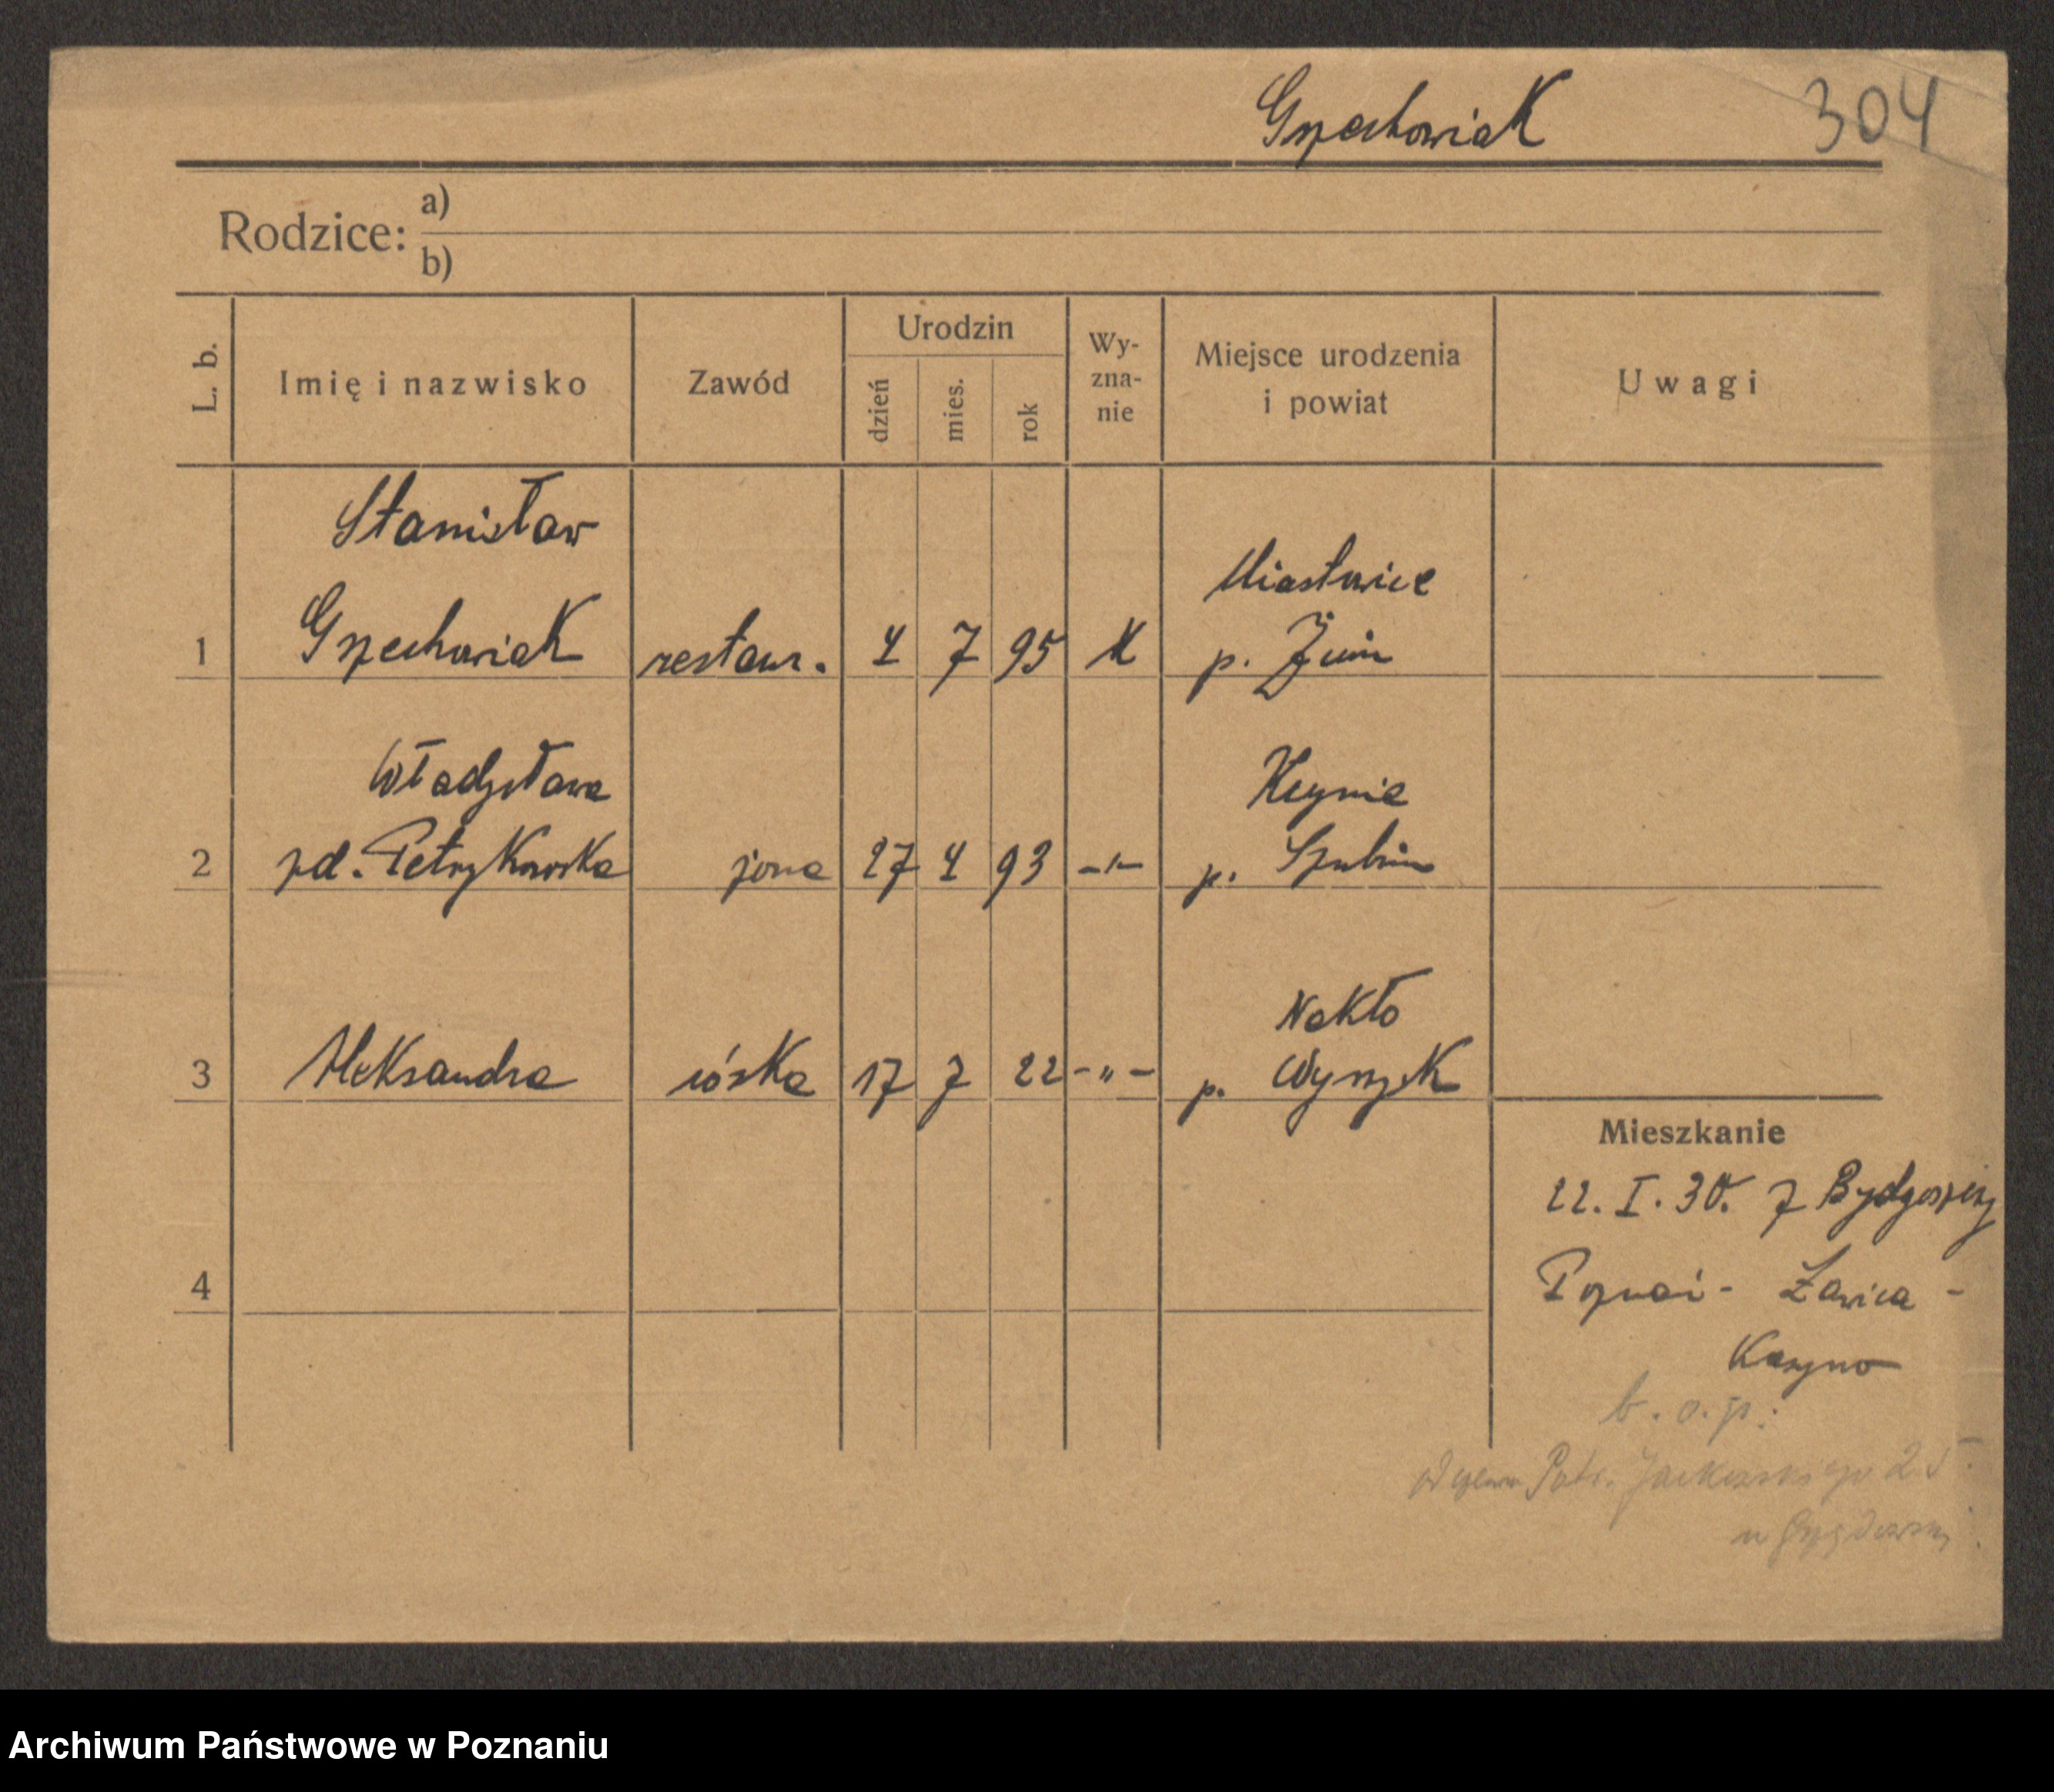 Grzechowiak 304
Rodzice: a)
b)
L. b. Imię i nazwisko Zawód Urodzin dzień mies. rok Wy-zna-nie Miejsce urodzenia i powiat Uwagi
Stanisław Miastowice
1 Grzechowiak restaur. 4 7 95 K p. Żnin
Władysława Kcynia
2 zd. Petrykowska żona 27 4 93 -"- p. Szubin
Nakło
3 Aleksandra córka 17 7 22 -"- p. Wyrzysk
Mieszkanie
22. I. 30. z Bydgoszczy
4 Poznań - Ławica -
Kasyno
b. o. p.
Patr. Jackowskiego 25
u
Archiwum Państwowe w Poznaniu